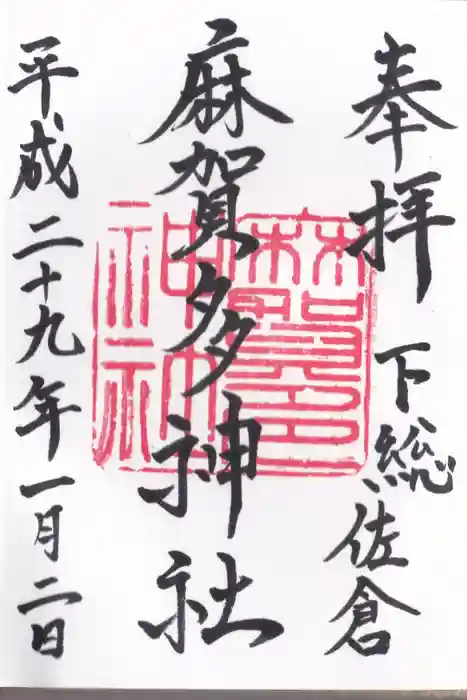 奉拝 下総佐倉
麻賀多神社
平成二十九年一月二日
麻賀多
神社